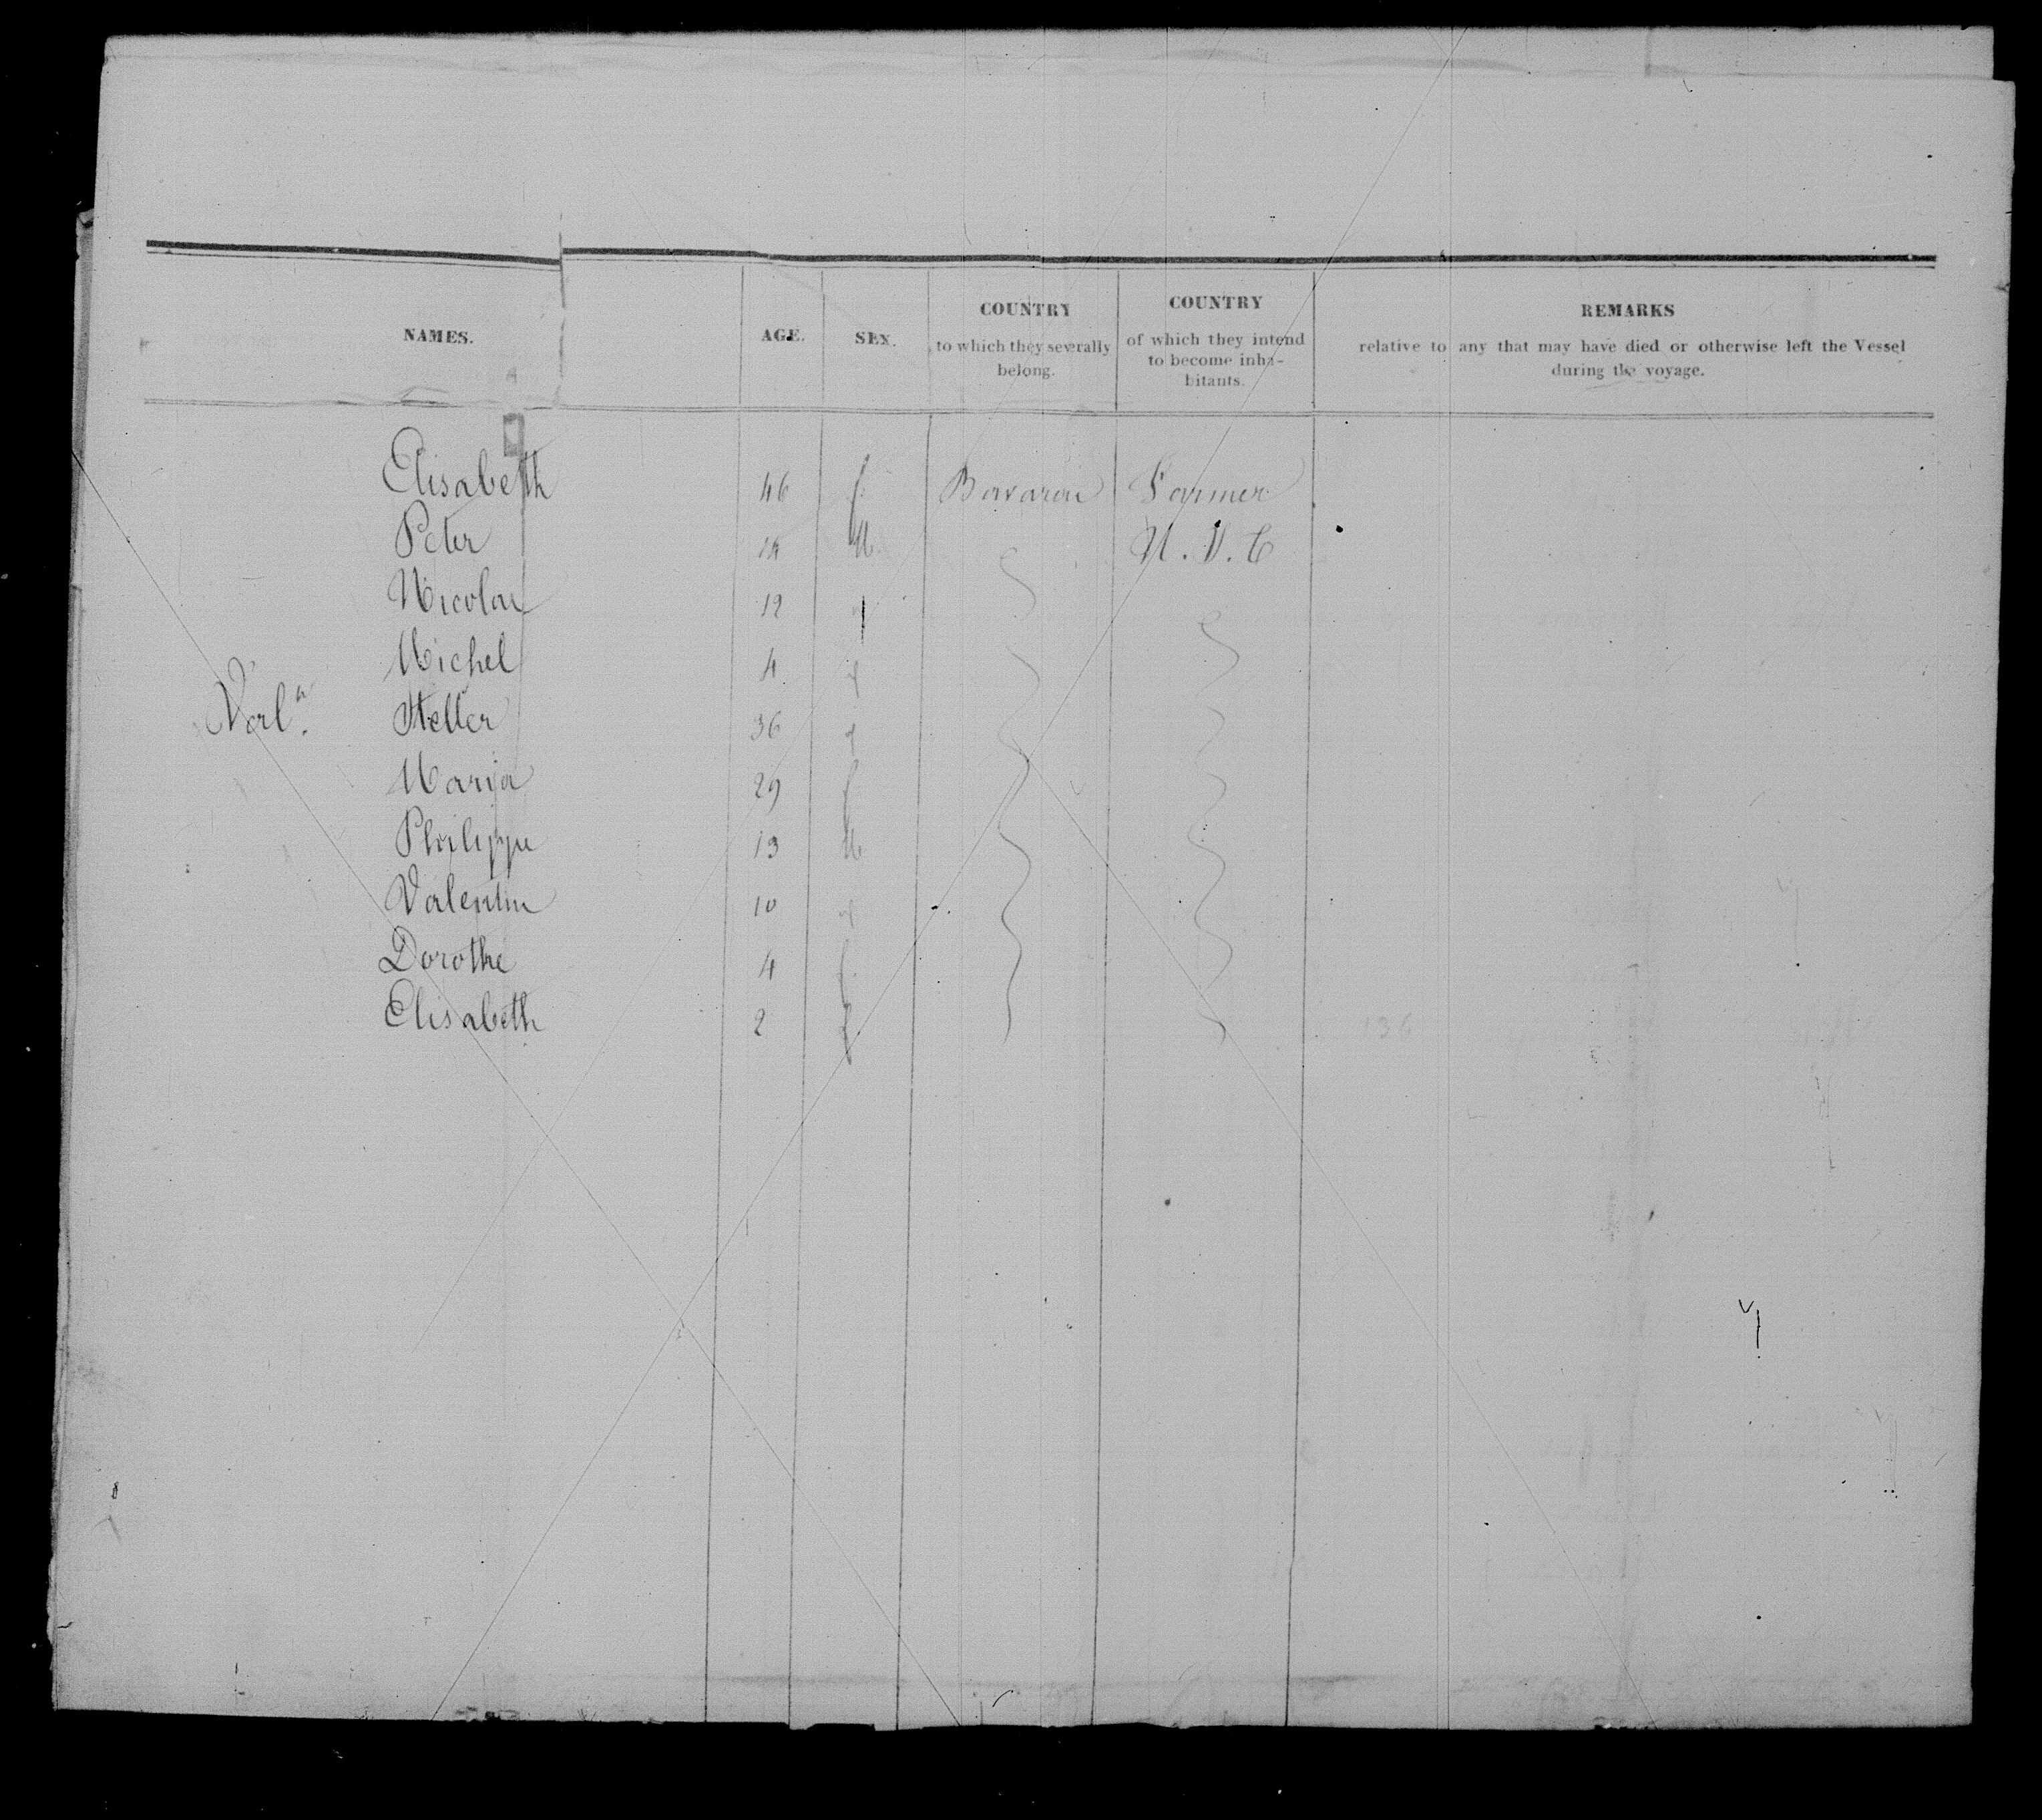 NAMES. AGE. SEX. COUNTRY to which they severally belong. COUNTRY of which they intend to become inha-bitants. REMARKS relative to any that may have died or otherwise left the Vessel during the voyage.
Elisabeth 46 f. Bavarou Farmer
Peter M. N. V. C
Nicolai 12
Michel 4
Val.n Heller 36
Maria 29 f
Philippe 13 M
Valentin 10
Dorothe 4 f.
Elisabeth 2 f
136